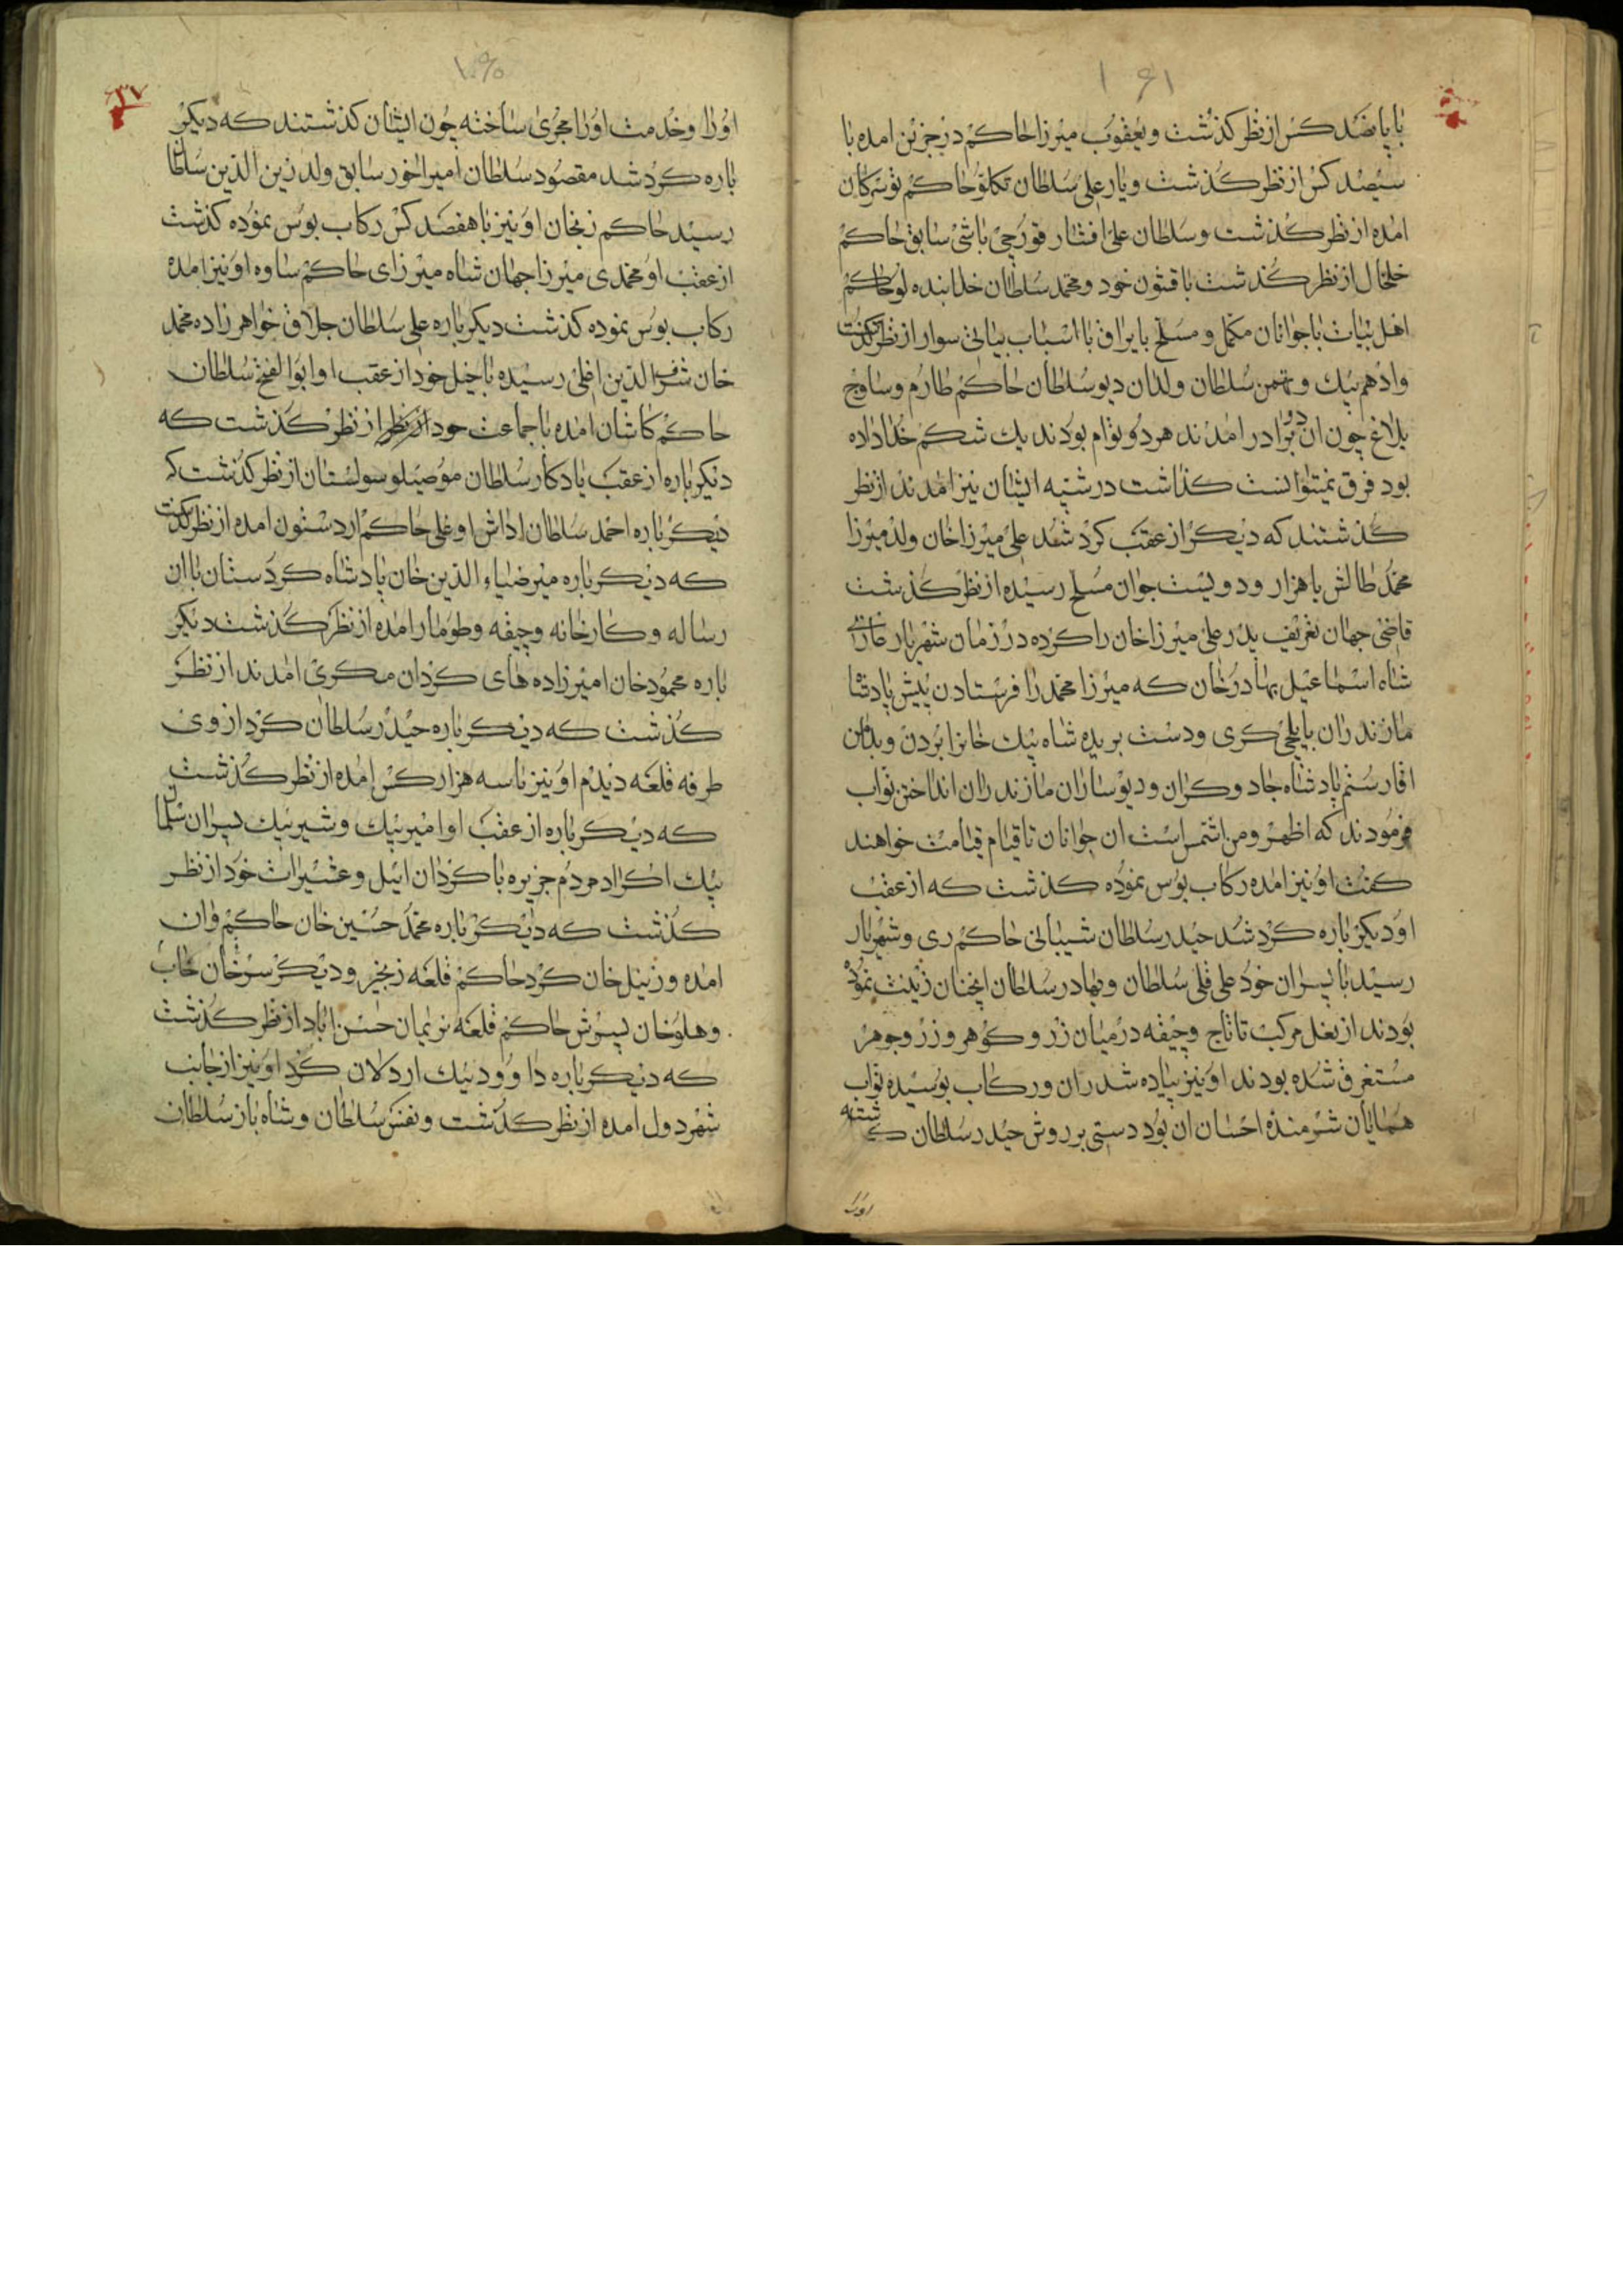 ۱۶۱
با پانصد کس از نظر کذشت و یعقوب میرزا حاکم درجزین امده با
سیصد کس از نظر کذشت و یار علی سلطان تکلو حاکم توسرکان
امده از نظر کذشت و سلطان علی افشار قورچی باشی سابق حاکم
خلخال از نظر کذشت با قشون خود و محمد سلطان خدابنده لو حاکم
اهل بیات با جوانان مکمل و مسلح با یراق با اسباب بیاتی سوار از نظر کذشت
وادهم بیك و تهمن سلطان ولدان دیو سلطان حاکم طارم و ساوج
بلاغ چون ان دو برادر امدند هر دو توام بودند یك شکم خدا داده
بود فرق نمیتوانست کذاشت در شبیه ایشان نیز امدند از نظر
کذشتند که دیکر از عقب کرد شد علی میرزا خان ولد میرزا
محمد طالش با هزار و دویست جوان مسلح رسیده از نظر کذشت
قاضی جهان تعریف پدر علی میرزا خان را کرده در زمان شهریار غازی
شاه اسماعیل بهادر خان که میرزا محمد را فرستادن پیش پادشا
مازندران بایلچی کری و دست بریده شاه بیك خانرا بردن و بدامن
اقا رستم پادشاه جادوکران و دیوساران مازندران انداختن نواب
فرمودند که اظهر ومن اشتمس است ان جوانان تا قیام قیامت خواهند
کفت او نیز امده رکاب بوس نموده کذشت که از عقب
او دیکر باره کرد شد حیدر سلطان شیبانی حاکم ری و شهریار
رسید با پسران خود علی قلی سلطان و بهادر سلطان انچنان زینت نموده
بودند از بغل مرکب تا تاج و چیفه در میان زر و کوهر و زر و جوهر
مستغرق شده بودند او نیز پیاده شد ران و رکاب بوسیده نواب
همایان شرمنده احسان ان بود دستی بر روش حیدر سلطان ک شته
اورا
۳۷
اورا و خدمت اورا مجری ساخته چون ایشان کذشتند که دیکر
باره کرد شد مقصود سلطان امیراخور سابق ولد زین الدین سلطان
رسید حاکم زنجان او نیز با هفصد کس رکاب بوس نموده کذشت
از عقب او محمدی میرزا جهان شاه میرزای حاکم ساوه او نیز امده
رکاب بوس نموده کذشت دیکر باره علی سلطان جلاق خواهر زاده محمد
خان شرف الدین اغلی رسیده با خیل خود از عقب او ابوالفتح سلطان
حاکم کاشان امده با جماعت خود از نظر از نظر کذشت که
دیکر باره از عقب یادکار سلطان موصیلو سولستان از نظر کذشت که
دیکر باره احمد سلطان اداش اوغلی حاکم اردستون امده از نظر کذشت
که دیکر باره میر ضیاء الدین خان پادشاه کردستان با ان
رساله و کارخانه و چیفه و طومار امده از نظر کذشت دیکر
باره محمود خان امیرزاده های کردان مکری امدند از نظر
کذشت که دیکر باره حیدر سلطان کرد از وی
طرفه قلعه دیدم او نیز با سه هزار کس امده از نظر کذشت
که دیکر باره از عقب او امیر بیك و شیر بیك پسران سلمان
بیك اکراد مردم جزیره با کردان ائیل و عشیرات خود از نظر
کذشت که دیکر باره محمد حسین خان حاکم وان
امده و زینل خان کرد حاکم قلعه زنجیر و دیکر سرخان خاب
وهلو خان پسرش حاکم قلعه نریمان حسن اباد از نظر کذشت
که دیکر باره داوود بیك اردلان کرد او نیز از جانب
شهر دول امده از نظر کذشت و نفس سلطان و شاه باز سلطان